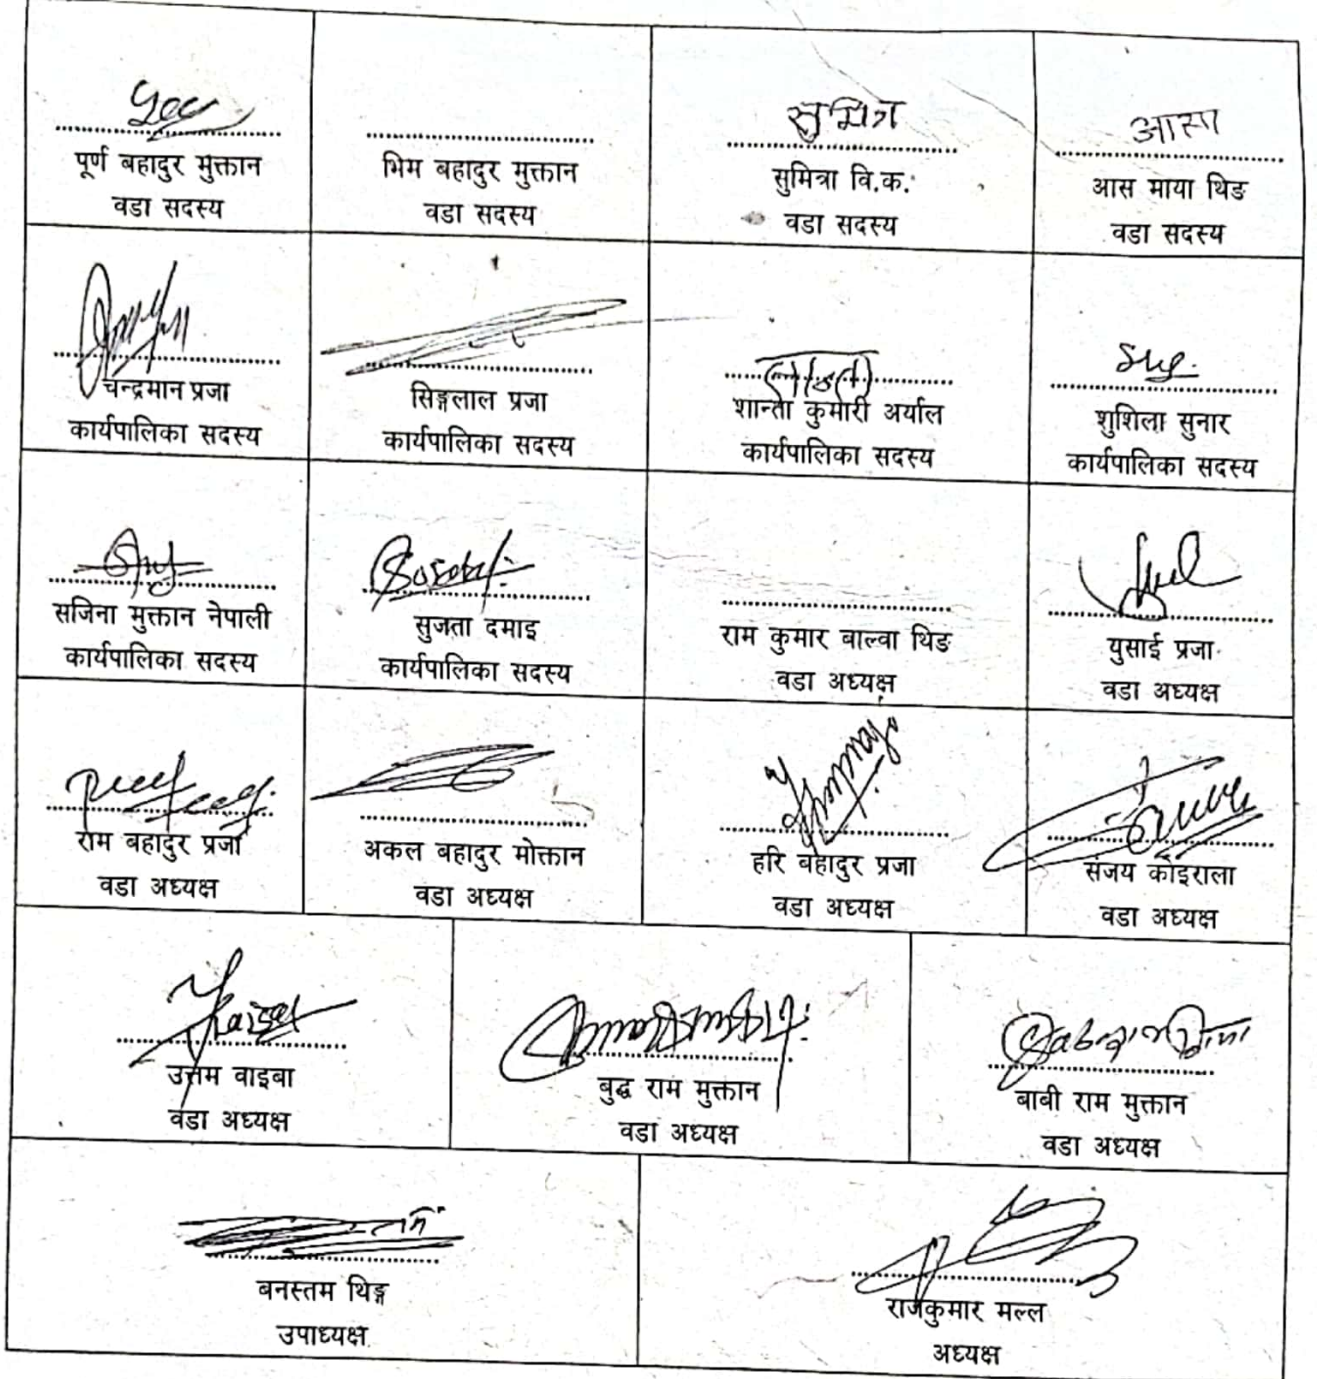 पूर्ण बहादुर मुक्तान
वडा सदस्य
भिम बहादुर मुक्तान
वडा सदस्य
सुमित्रा
सुमित्रा वि.क.
वडा सदस्य
आसा
आस माया थिङ
वडा सदस्य
चन्द्रमान प्रजा
कार्यपालिका सदस्य
सिङ्गलाल प्रजा
कार्यपालिका सदस्य
शान्ता कुमारी अर्याल
कार्यपालिका सदस्य
शुशिला सुनार
कार्यपालिका सदस्य
सजिना मुक्तान नेपाली
कार्यपालिका सदस्य
सुजता दमाइ
कार्यपालिका सदस्य
राम कुमार बाल्वा थिङ
वडा अध्यक्ष
युसाई प्रजा
वडा अध्यक्ष
राम बहादुर प्रजा
वडा अध्यक्ष
अकल बहादुर मोक्तान
वडा अध्यक्ष
हरि बहादुर प्रजा
वडा अध्यक्ष
संजय कोइराला
वडा अध्यक्ष
उत्तम वाइबा
वडा अध्यक्ष
बुद्ध राम मुक्तान
वडा अध्यक्ष
बाबी राम मुक्तान
वडा अध्यक्ष
बनस्तम थिङ्ग
उपाध्यक्ष
राजकुमार मल्ल
अध्यक्ष